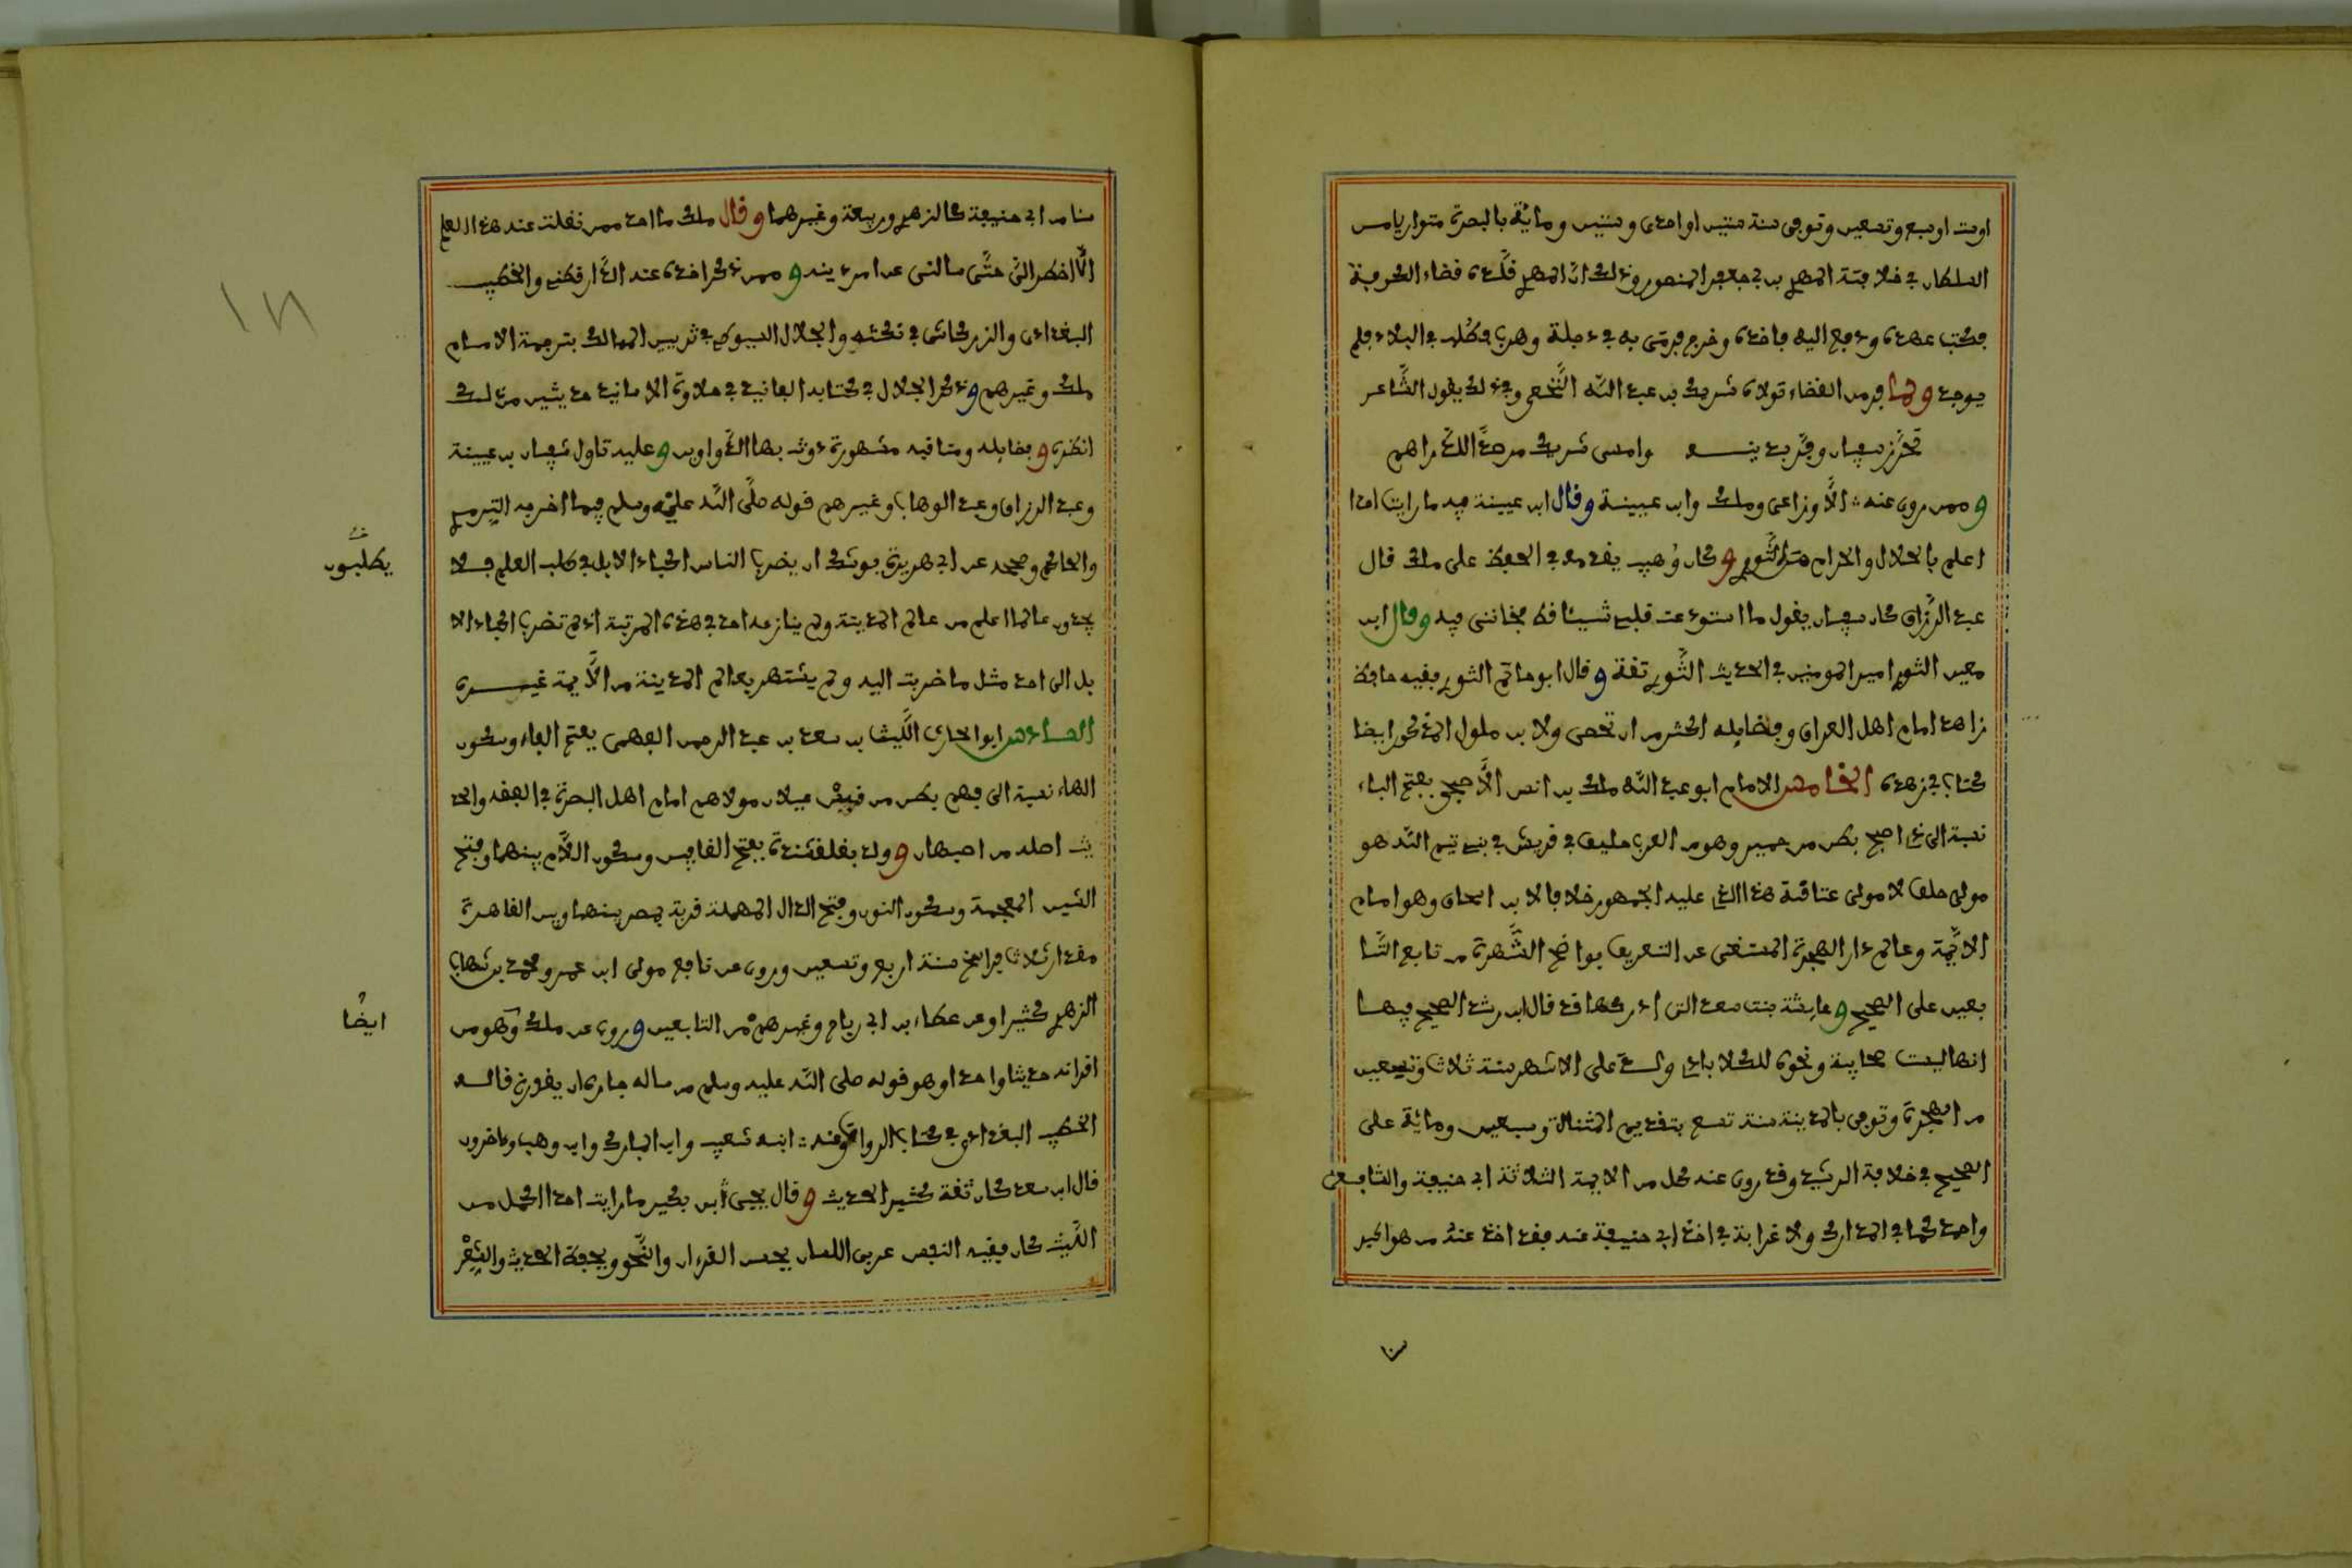 او ست او سبع وتسعين وتوفي سنة ستين او احدى وستين ومائة بالبصرة متواريا من
السلطان في خلافة المهدي بن ابي جعفر المنصور وذلك ان المهدي قلده قضاء الكوفة
فكتب عهده ودفع اليه فاخذه وخرج فرمى به في دجلة وهرب فطلب في البلاد فلم
يوجد ولما فر من القضاء تولاه شريك بن عبد الله النخعي وفي ذلك يقول الشاعر
تحرز سفيان وفر بدينه وامسى شريك مرصدا للدراهم
وممن روى عنه الاوزاعي وملك وابن عيينة وقال ابن عيينة فيه ما رايت احدا
اعلم بالحلال والحرام من الثوري وكان وهيب يقدمه في الحفظ على ملك قال
عبد الرزاق كان سفيان يقول ما استودعت قلبي شيئا قط فخانني فيه وقال ابن
معين الثوري امير المومنين في الحديث الثوري ثقة وقال ابو حاتم الثوري فقيه حافظ
زاهد امام اهل العراق وفضايله اكثر من ان تحصى ولابن ملول المذكور ايضا
كتاب في زهده الخامس الامام ابو عبد الله ملك بن انس الاصبحي بفتح الباء
نسبة الى ذي اصبح بطن من حمير وهو من العرب حليف في قريش في بني تيم الله هو
مولى حلف لا مولى عتاقة هذا الذي عليه الجمهور خلافا لابن اسحاق وهو امام
الائمة وعالم دار الهجرة المستغنى عن التعريف بواضح الشهرة من تابع التا
بعين على الصحيح وعايشة بنت سعد التي ادركها قد قال ابن رشد الصحيح فيها
انها ليست صحابية ونحوه للكلاباذي ولد على الاشهر سنة ثلاث وتسعين
من الهجرة وتوفي بالمدينة سنة تسع بتقديم المثناة وسبعين ومائة على
الصحيح في خلافة الرشيد وقد روى عنه كل من الايمة الثلاثة ابي حنيفة والشافعي
واحمد كما في المدارك ولا غرابة في اخذ ابي حنيفة عنه فقد اخذ عنه من هو اكبر
سنا من ابي حنيفة كالزهري وربيعة وغيرهما وقال ملك ما احد ممن نقلت عنه هذا العلم
الا اضطر الي حتى سالني عن امر دينه وممن ذكر اخذه عنه الدارقطني والخطيب
البغدادي والزركاشي في نكته والجلال السيوطي في تزيين الممالك بترجمة الامام
ملك وغيرهم وذكر الجلال في كتابه الفانيد في حلاوة الاسانيد حديثين من ذلك
انظره وفضايله ومناقبه مشهورة دونت بها الدواوين وعليه تاول سفيان بن عيينة
وعبد الرزاق وعبد الوهاب وغيرهم قوله صلى الله عليه وسلم فيما اخرجه الترمذي
والحاكم وصححه عن ابي هريرة يوشك ان يضرب الناس اكباد الابل في طلب العلم فلا
يطلبون
يجدون عالما اعلم من عالم المدينة ولم ينازعه احد في هذه المرتبة اذ لم تضرب اكباد الا
بل الى احد مثل ما ضربت اليه ولم يشتهر بعالم المدينة من الايمة غيره
السادس ابو الحارث الليث بن سعد بن عبد الرحمن الفهمي بفتح الفاء وسكون
الهاء نسبة الى فهم بطن من قيس عيلان مولاهم امام اهل البصرة في الفقه والحد
يث اصله من اصبهان وولد بقلقشندة بفتح القافين وسكون اللام بينهما وفتح
الشين المعجمة وسكون النون وفتح الدال المهملة قرية بمصر بينها وبين القاهرة
مقدار ثلاث فراسخ سنة اربع وتسعين وروى عن نافع مولى ابن عمر ومحمد بن شهاب
الزهري كثيرا وعن عطاء بن ابي رباح وغيرهم من التابعين وروى عن ملك وهو من
ايضا
اقرانه حديثا واحدا وهو قوله صلى الله عليه وسلم من ساله جاره ان يغرز قاله
الخطيب البغدادي في كتاب الرواة وعنه ابنه شعيب وابن المبارك وابن وهب وءاخرون
قال ابن سعد كان ثقة كثير الحديث وقال يحيى ابن بكير ما رايت احدا اكمل من
الليث كان فقيه النفس عربي اللسان يحسن القرءان والنحو ويحفظ الحديث والشعر